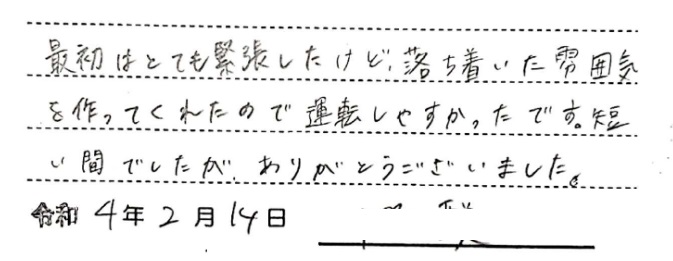 最初はとても緊張したけど、落ち着いた雰囲気
を作ってくれたので運転しやすかったです。短
い間でしたが、ありがとうございました。
令和4年2月14日